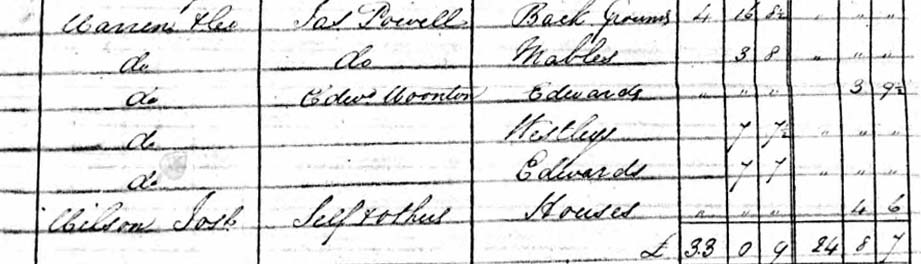 Warren & Co Jas Powell Back Grounds 4 16 8½ " " "
do do Mables 3 8 " " "
do Edwd Woonton Edwards " " " 3 9½
do Westleys 7 7½ " " "
do Edwards 7 7 " " "
Wilson Josh Self & others Houses " " " 4 6
£ 33 0 9 24 8 7